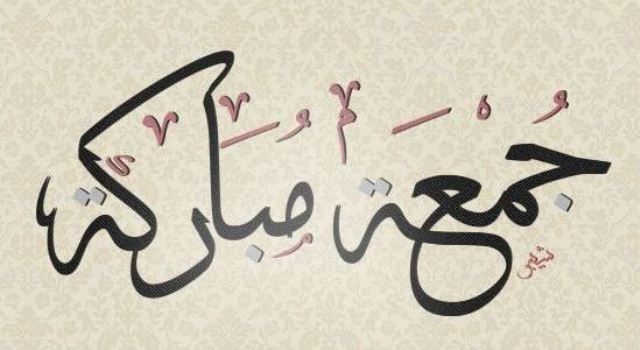 جُمعَة مُبَاركَة